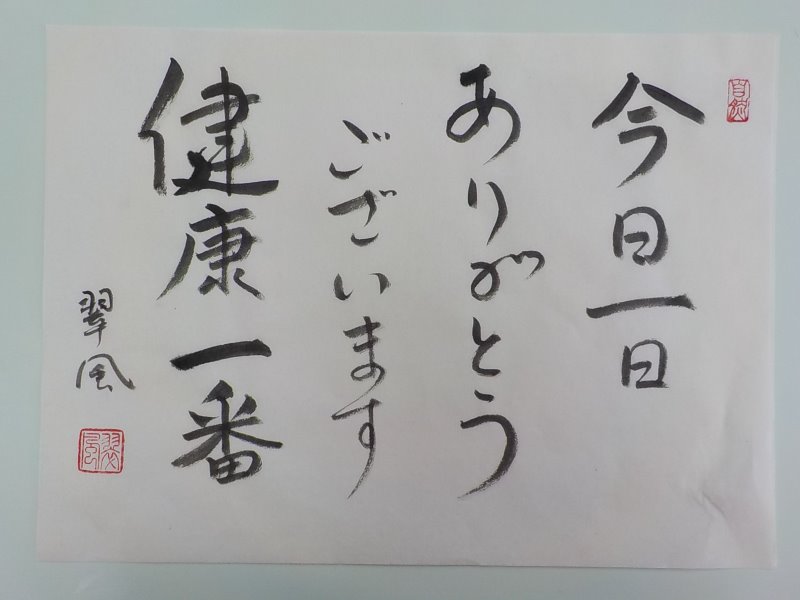 今日一日
ありがとう
ございます
健康一番
翠風
翠風